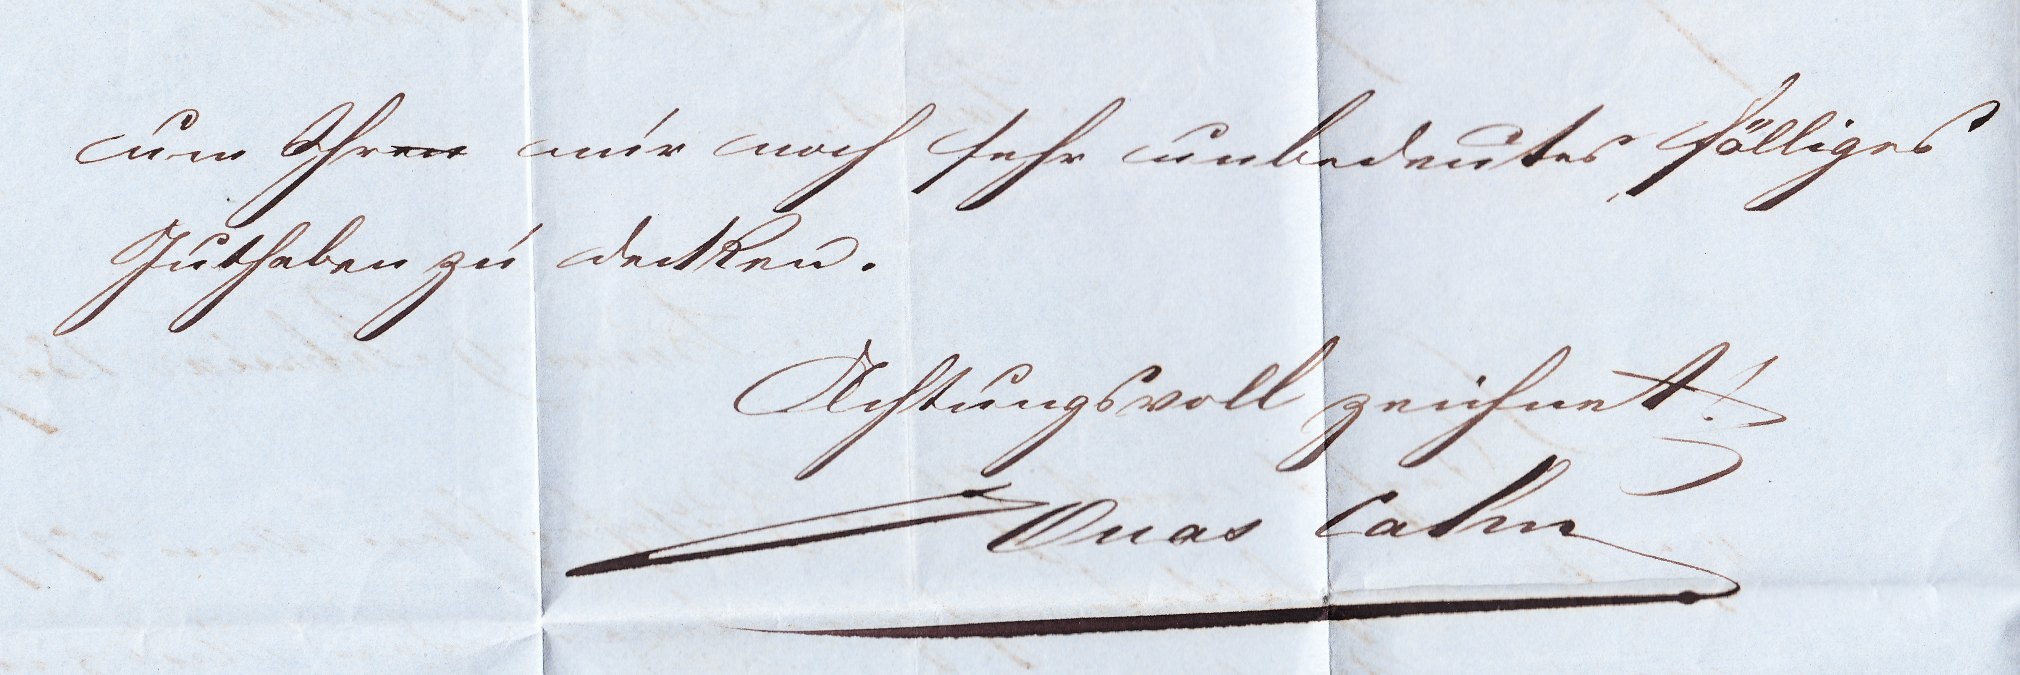 um Ihren nur noch sehr unbedeutes, fälliges
Guthaben zu decken.
Achtungsvoll zeichnet!
Jonas Cahn